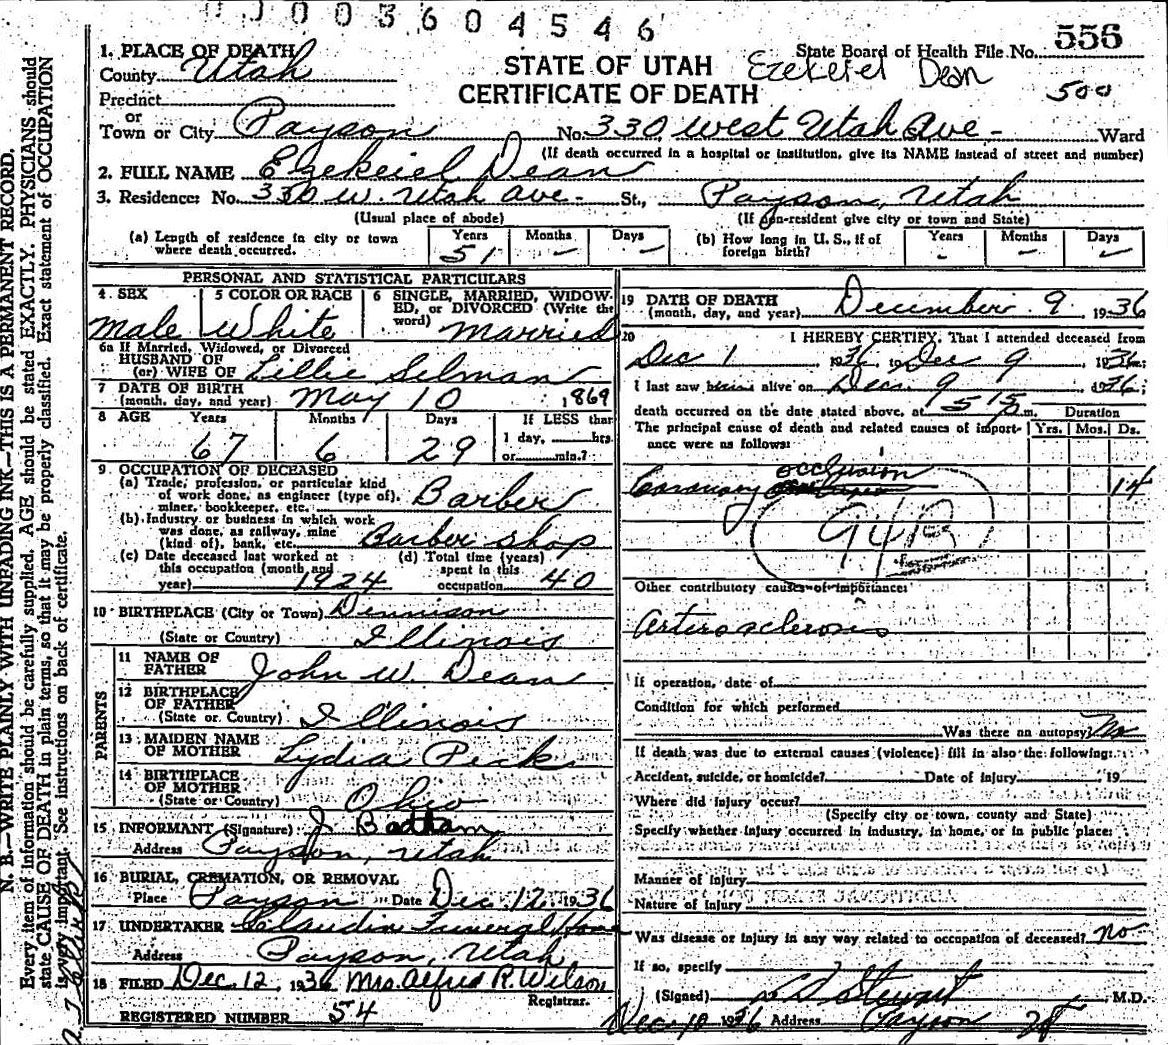 003604546
556
1. PLACE OF DEATH
County Utah
Precinct
or
Town or City Payson
STATE OF UTAH
CERTIFICATE OF DEATH
State Board of Health File No.
Ezekeiel Dean
500
No. 330 west Utah Ave- Ward
(If death occurred in a hospital or institution, give its NAME instead of street and number)
2. FULL NAME Ezekeiel Dean
3. Residence: No. 330 W. Utah ave- St., Payson, Utah
(Usual place of abode) (If non-resident give city or town and State)
(a) Length of residence in city or town where death occurred. Years 51 Months - Days -
(b) How long in U. S., if of foreign birth? Years - Months - Days -
PERSONAL AND STATISTICAL PARTICULARS
4 SEX Male
5 COLOR OR RACE White
6 SINGLE, MARRIED, WIDOWED, or DIVORCED (Write the word) Married
6a If Married, Widowed, or Divorced
HUSBAND OF
(or) WIFE OF Lillie Selman
7 DATE OF BIRTH
(month, day, and year) May 10 1869
8 AGE Years 67 Months 6 Days 29
If LESS than
1 day, hrs.
or min.?
9 OCCUPATION OF DECEASED
(a) Trade, profession, or particular kind
of work done, as engineer (type of),
miner, bookkeeper, etc. Barber
(b) Industry or business in which work
was done, as railway, mine
(kind of), bank, etc. Barber Shop
(c) Date deceased last worked at
this occupation (month and
year) 1924
(d) Total time (years)
spent in this
occupation 40
10 BIRTHPLACE (City or Town) Dennison
(State or Country) Illinois
PARENTS
11 NAME OF
FATHER John W. Dean
12 BIRTHPLACE
OF FATHER
(State or Country) Illinois
13 MAIDEN NAME
OF MOTHER Lydia Peck
14 BIRTHPLACE
OF MOTHER
(State or Country) Ohio
15 INFORMANT (Signature) J. Badham
Address Payson, Utah
16 BURIAL, CREMATION, OR REMOVAL
Place Payson Date Dec. 12, 1936
17 UNDERTAKER Claudin Funeral Home
Address Payson, Utah
18 FILED Dec. 12, 1936 Mrs. Alfred R. Wilson
Registrar.
REGISTERED NUMBER 54
19 DATE OF DEATH
(month, day, and year) December 9 1936
20 I HEREBY CERTIFY, That I attended deceased from
Dec 1 1936, to Dec 9 1936;
I last saw him alive on Dec. 9 1936;
death occurred on the date stated above, at 5 15 m.
The principal cause of death and related causes of importance were as follows:
Duration
Yrs. Mos. Ds.
occlusion
Coronary 14
94B
Other contributory causes of importance:
Arterosclerosis
If operation, date of
Condition for which performed
Was there an autopsy? No
If death was due to external causes (violence) fill in also the following:
Accident, suicide, or homicide? Date of injury 19
Where did injury occur?
(Specify city or town, county and State)
Specify whether injury occurred in industry, in home, or in public place:
Manner of injury
Nature of injury
Was disease or injury in any way related to occupation of deceased? no
If so, specify
(Signed) L D Stewart M.D.
Dec 10 1936 Address Payson
N. B.—WRITE PLAINLY WITH UNFADING INK—THIS IS A PERMANENT RECORD.
Every item of information should be carefully supplied. AGE should be stated EXACTLY. PHYSICIANS should
state CAUSE OF DEATH in plain terms, so that it may be properly classified. Exact statement of OCCUPATION
is very important. See instructions on back of certificate.